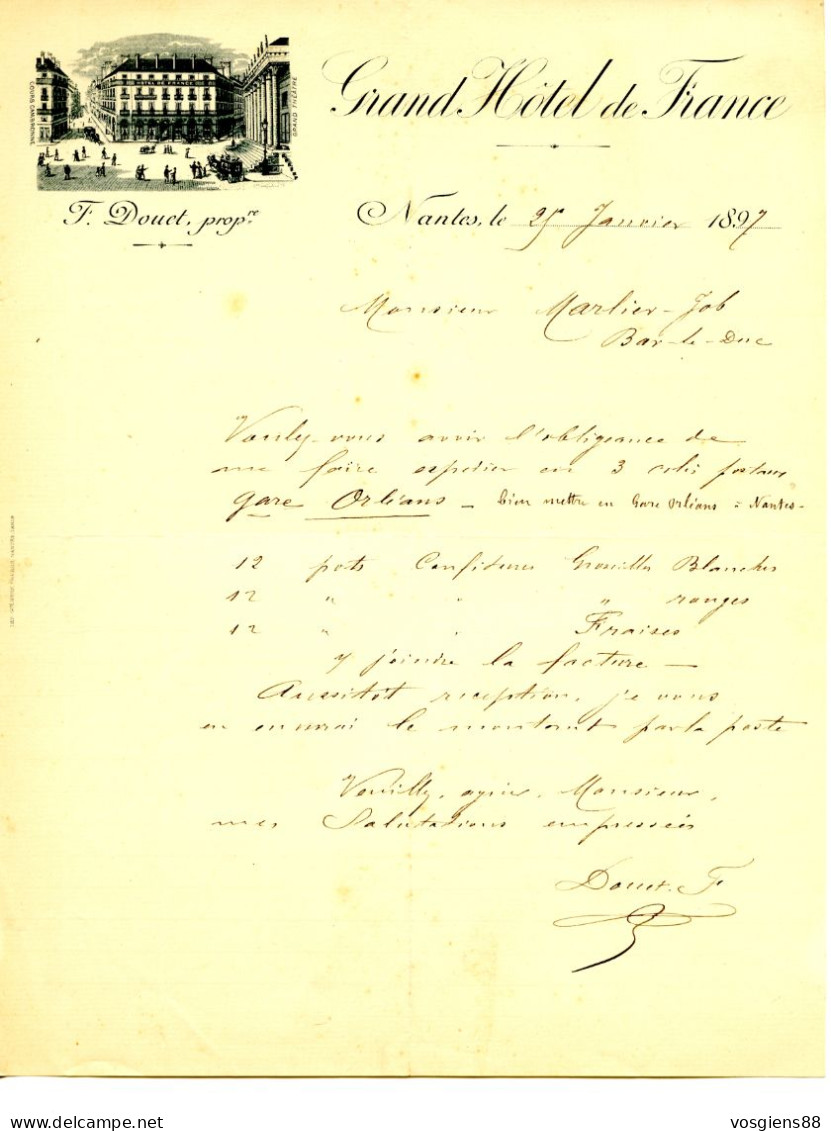 Grand Hôtel de France
HOTEL DE FRANCE
GRAND THÉATRE
F. Douet, prop.re
Nantes, le 25 Janvier 1897
Monsieur Marlier-Job
Bar-le-Duc
Veuillez-vous avoir l'obligeance de
me faire expédier en 3 colis postaux
gare Orléans - bien mettre en Gare Orléans à Nantes-
12 pots Confitures Groseilles Blanches
12 " " " rouges
12 " " Fraises
y joindre la facture -
Aussitôt reception, je vous
en enverrai le montant par la poste
Veuillez, agréer, Monsieur,
mes Salutations empressées
Douet. F
vosgiens88